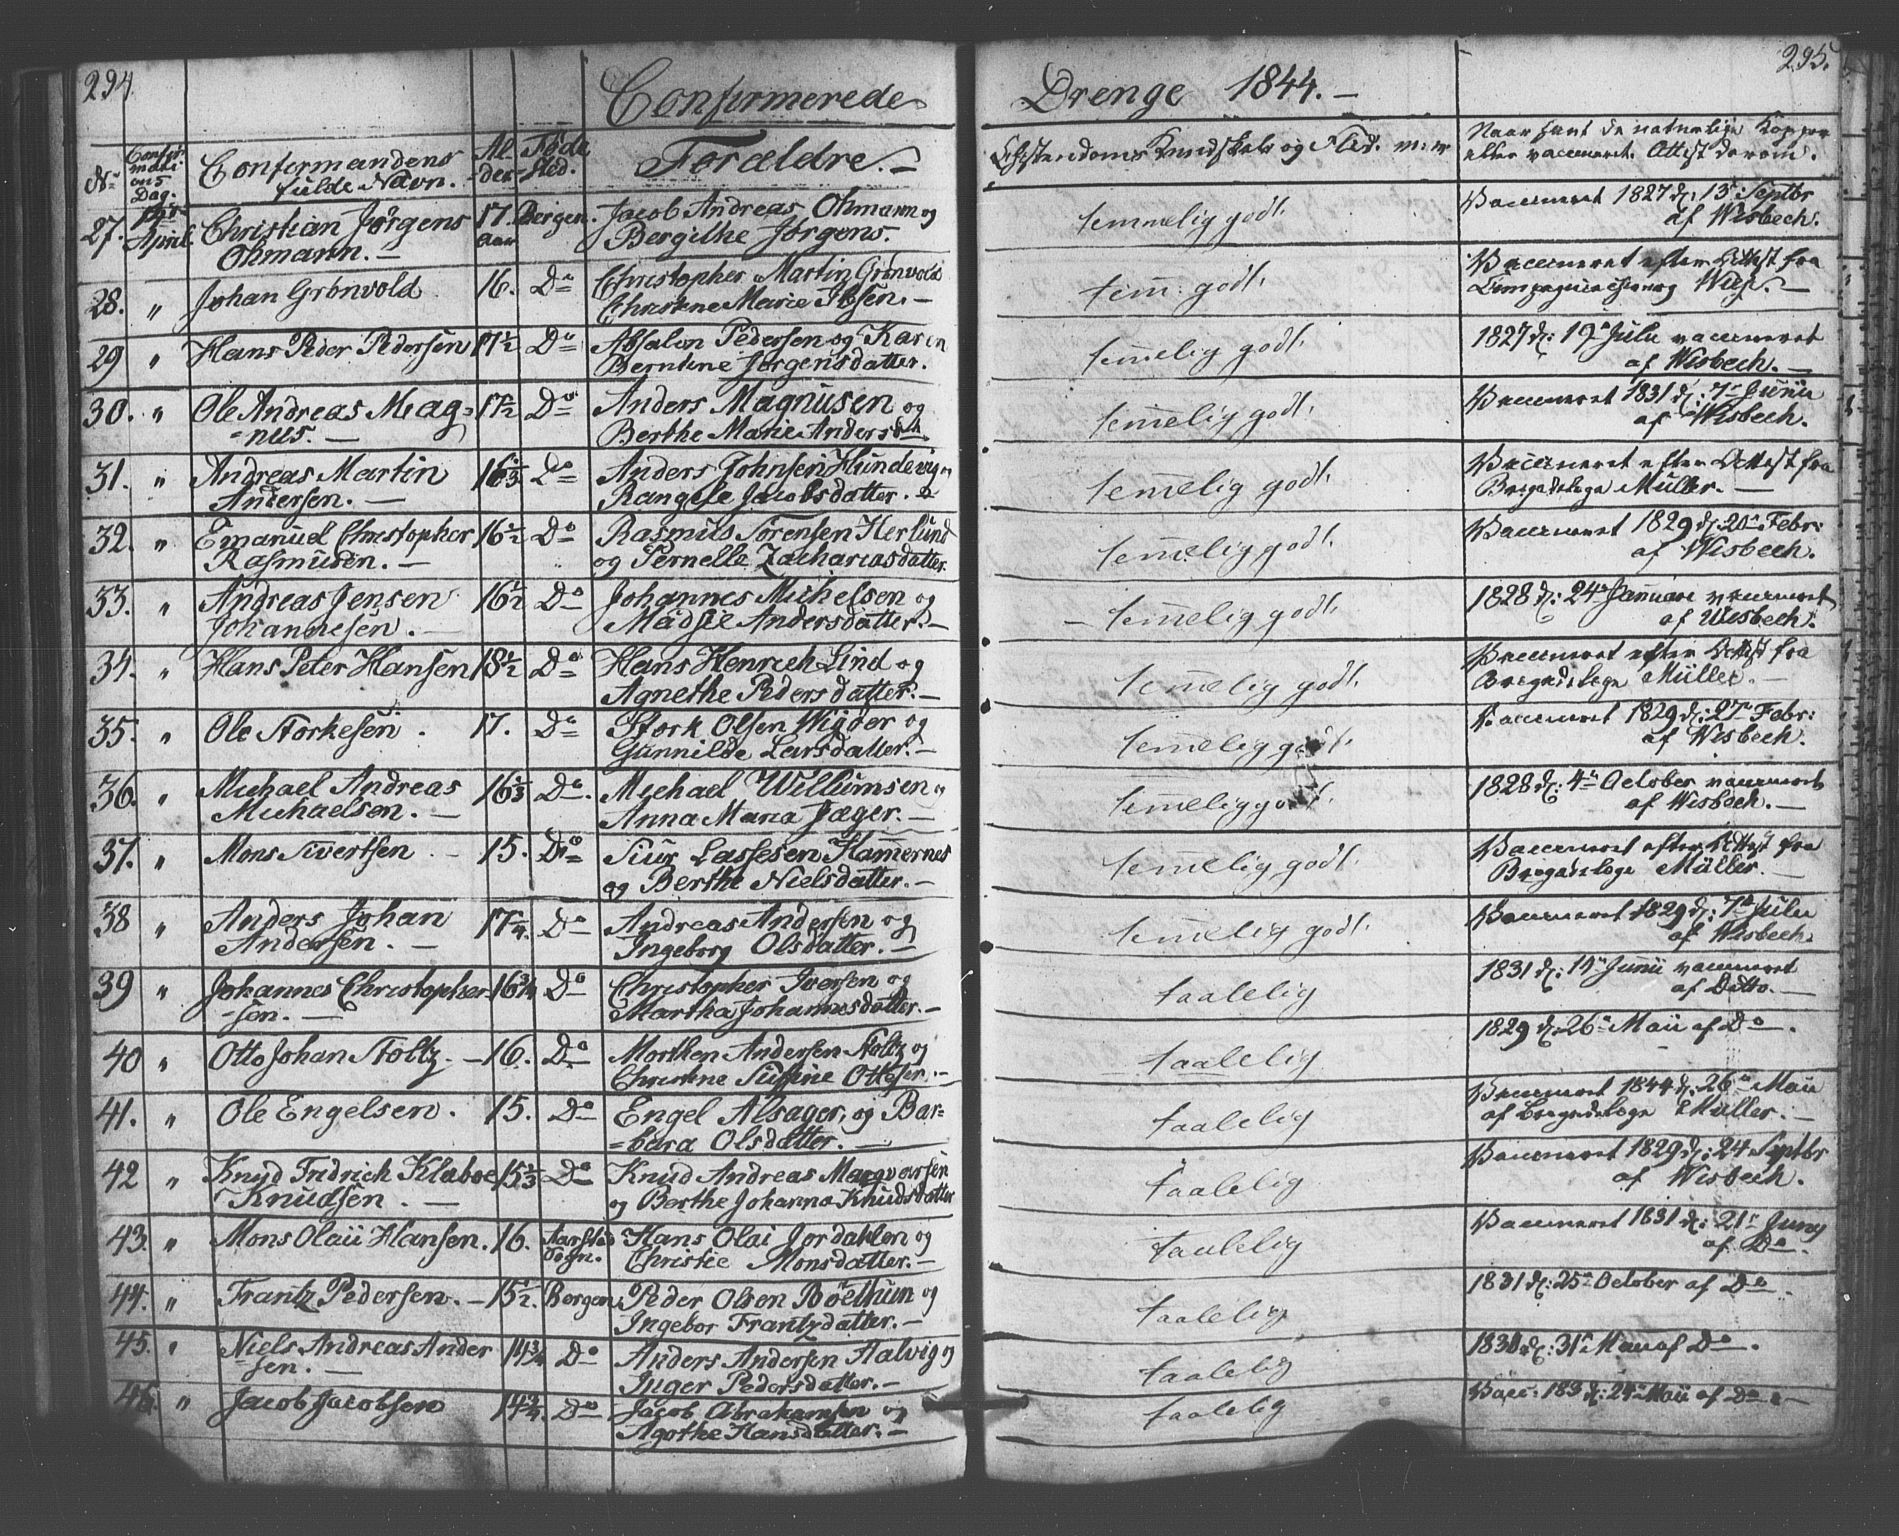 294
Confirmerede
Drenge 1844. —
295.
No
Confirmations Dag.
Confirmandens fulde Navn.
Alder
Føde Sted.
Forældre. —
Christendoms Kundskab og Flid.
Naar havt de naturlige Kopper
eller vaccineret. Attest derom.
27. April. Christian Jørgens 17. Bergen. Jacob Andreas Ohmann og temmelig godt. Vaccineret 1827 d: 13 Septbr
Ohmann. — Aar Bergithe Jørgens. af Wisbech.
28. " Johan Grönvold 16. Do Christopher Martin Grønvold tem: godt. Vaccineret efter Attest fra
Christine Marie Ibsen. — Wiese. —
29 " Hans Peder Pedersen 17½ Do Absalon Pedersen og Karen temmelig godt. 1827 d: 19 Julii vaccineret
Berntine Jørgensdatter. af Wisbech. —
30. " Ole Andreas Mag= 17½ Do Anders Magnusen og temmelig godt. Vaccineret 1831 d: 7 Junii
=nus. — Berthe Marie Andersdtr. af Wisbech.
31. " Andreas Martin 16⅓ Do Anders Johnsen Hundevig temmelig godt. Vaccineret efter Attest fra
Andersen. — Rangele Jacobsdatter. Brigadelæge Müller. —
32. " Emanuel Christopher 16½ Do Rasmus Sørensen Herlund temmelig godt. Vaccineret 1829 d: 20 Febr:
Rasmusen. — og Pernelle Zachariasdatter. af Wisbech.
33. " Andreas Jensen 16½ Do Johannes Michelsen og temmelig godt. 1828 d: 24 Januari vaccineret
Johannesen. — Madsie Andersdatter. — af Wisbech.
34. " Hans Peter Hansen 18½ Do Hans Henrich Lind og temmelig godt. Vaccineret efter Attest fra
Agnethe Pedersdatter. — Brigadelæge Müller. —
35. " Ole Storkesen. 17. Do Stork Olsen Wigder og temmelig godt. Vaccineret 1829 d: 27 Febr:
Gunnilde Larsdatter. — af Wisbech.
36. " Michael Andreas 16⅓ Do. Michael Willumsen og temmelig godt. 1828 d: 4 October vaccineret
Michaelsen. — Anna Maria Jæger. — af Wisbech. —
37. " Mons Sivertsen. — 15. Do Siur Lassesen Hamernes temmelig godt. Vaccineret efter Attest fra
og Berthe Nielsdatter. — Brigadelæge Müller. —
38 " Anders Johan 17¼ Do Andreas Andersen og temmelig godt. Vaccineret 1829 d: 7 Julii
Andersen. — Ingeborg Olsdatter. — af Wisbech.
39 " Johannes Christopher 16¾ Do Christopher Iversen og taalelig 1831 d: 14 Junii vaccineret
=sen. — Martha Johannesdatter. — af Ditto. —
40 " Otto Johan Stoltz. — 16. Do Morthen Andersen Stoltz og taalelig 1829 d: 26 Maii af Do.
Christine Susine Ottesen. —
41. " Ole Engelsen. 15. Do Engel Alsager, og Bar= taalelig Vaccineret 1844 d: 26 Maii
=bara Olsdatter. — af Brigadelæge Müller. —
42 " Knud Fridrich Klaboe 15⅓ Do Knud Andreas Marqvarsen taalelig Vaccineret 1829 d: 24 Septbr
Knudsen. — og Berthe Johanna Knudsdatter af Wisbech.
43. " Mons Olaii Hansen. 16. Aarstad Sogn. Hans Olai Jordahlen og taalelig Vaccineret 1831 d: 21 Juny
Christie Monsdatter. — af Do.
44. " Frantz Pedersen. — 15½. Bergen Peder Olsen Böethun og taalelig 1831 d: 25 October af Do.
Ingebor Frantzdatter. —
45. " Niels Andreas Ander 14¾ Do Anders Andersen Halvig og taalelig 1830 d: 31 Maii af Do.
=sen. — Inger Pedersdatter. —
46. " Jacob Jacobsen 14¾. Do Jacob Abrahamsen og taalelig Vacc: 183 d: 24 Maii af Do. —
Agothe Hansdatter. —